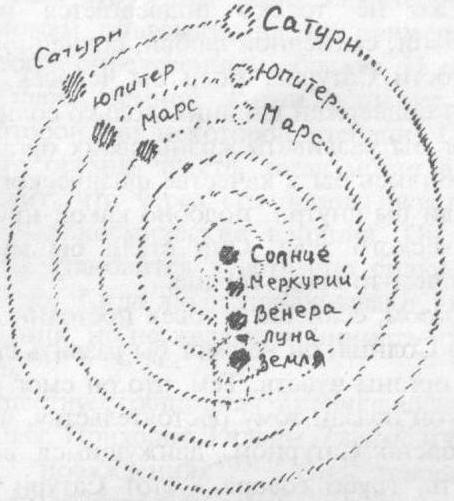 Сатурн
Сатурн
Юпитер
Юпитер
Марс
Марс
Солнце
Меркурий
Венера
Луна
Земля